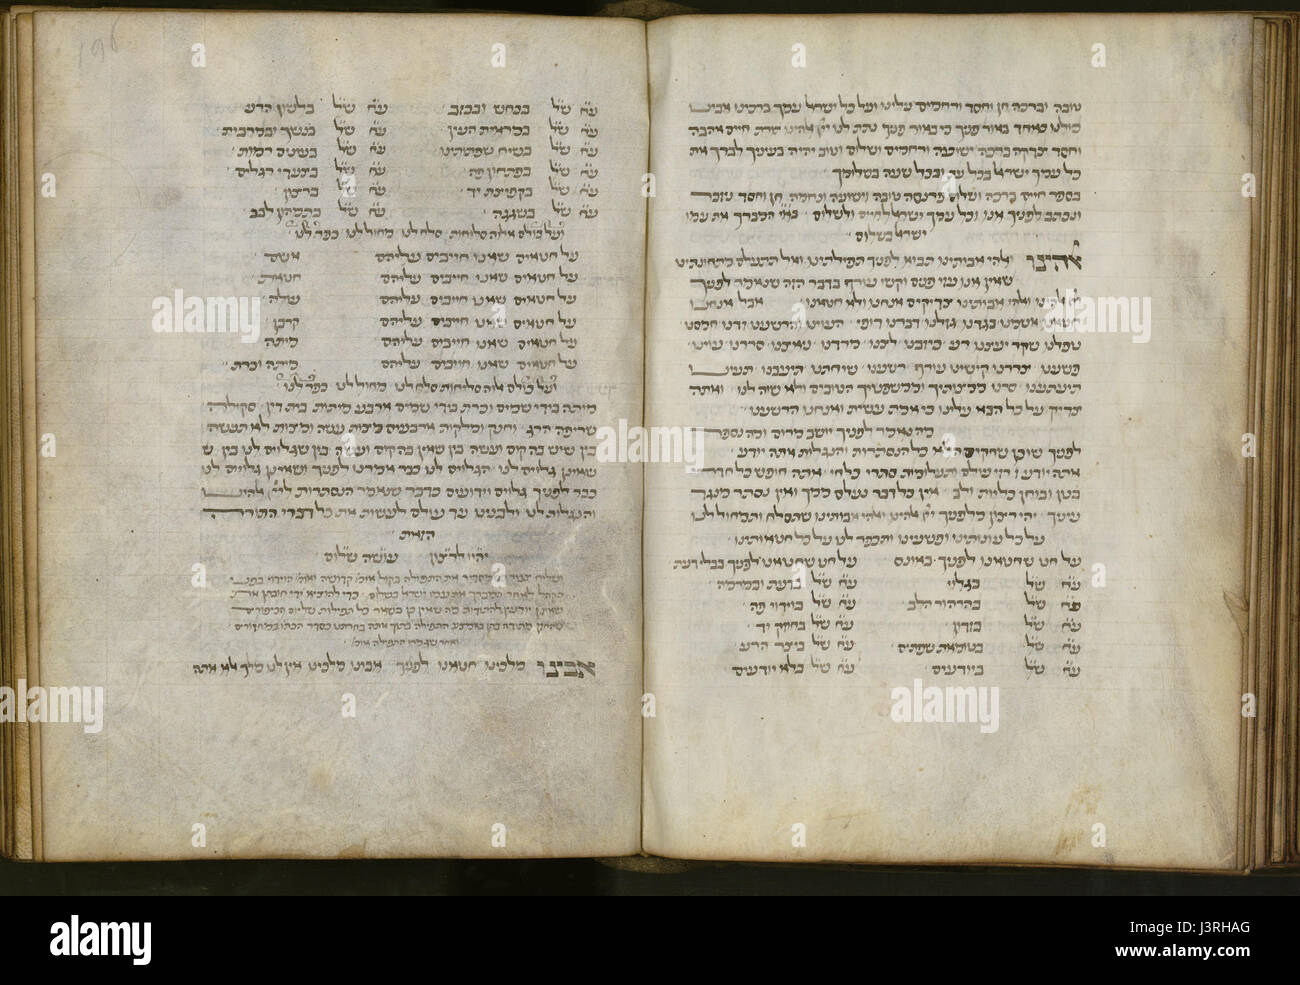 טובה וברכה חן וחסד ורחמים עלינו ועל כל ישראל עמך ברכינו אבינו
כולנו כאחד באור פניך כי באור פניך נתת לנו ייי אלהינו תורת חיים אהבה
וחסד וצדקה ברכה ישועה ורחמים ושלום וטוב יהיה בעיניך לברך את
כל עמך ישראל בכל עת ובכל שעה בשלומך
בספר חיים ברכה ושלום פרנסה טובה וישועה ונחמה חן וחסד
ונכתב לפניך אנו וכל עמך ישראל לחיים ולשלום המברך את עמו
ישראל בשלום
אלהי אבותינו תבא לפניך תפילתינו ואל תתעלם מתחינתינו
שאין אנו עזי פנים וקשי עורף בדבר הזה שנאמר לפניך
ייי אלהינו ואלהי אבותינו צדיקים אנחנו ולא חטאנו אבל אנחנו
חטאנו אשמנו בגדנו גזלנו דברנו דופי העוינו והרשענו זדנו חמסנו
טפלנו שקר יעצנו רע כיזבנו לצנו מרדנו סררנו עוינו
פשענו צררנו קישינו עורף רשענו שיחתנו תיעבנו תעינו
תיעתענו סרנו ממצותיך וממשפטיך הטובים ולא שוה לנו ואתה
צדיק על כל הבא עלינו כי אמת עשית ואנחנו הרשענו
מה נאמר לפניך יושב מרום ומה נספר
לפניך שוכן שחקים הלא כל הנסתרות והנגלות אתה יודע
אתה יודע רזי עולם ותעלומות סתרי כל חי אתה חופש כל חדרי
בטן ובוחן כליות ולב אין כל דבר נעלם ממך ואין נסתר מנגד
עיניך יהי רצון מלפניך ייי אלהינו ואלהי אבותינו שתסלח ותמחול לנו
על כל עונותינו ופשעינו ותכפר לנו על כל חטאותינו
על חט שחטאנו לפניך באונס על חט שחטאנו לפניך בבלי דעת
ע״ח ש״ל בגלוי ע״ח ש״ל בדעת ובמרמה
ע״ח ש״ל בהרהור הלב ע״ח ש״ל בוידוי פה
ע״ח ש״ל בזדון ע״ח ש״ל בחוזק יד
ע״ח ש״ל בטומאת שפתים ע״ח ש״ל ביצר הרע
ע״ח ש״ל ביודעים ע״ח ש״ל בלא יודעים
ע״ח ש״ל בכחש ובכזב ע״ח ש״ל בלשון הרע
ע״ח ש״ל במראית העין ע״ח ש״ל בנשך ובמרבית
ע״ח ש״ל בשיח שפתותינו ע״ח ש״ל בעינים רמות
ע״ח ש״ל בפתחון פה ע״ח ש״ל בצעדי רגלים
ע״ח ש״ל בקפיצת יד ע״ח ש״ל ברצון
ע״ח ש״ל בשגגה ע״ח ש״ל בתמהון לבב
ועל כולם אלוה סליחות סלח לנו מחול לנו כפר לנו
על חטאים שאנו חייבים עליהם אשם
על חטאים שאנו חייבים עליהם חטאת
על חטאים שאנו חייבים עליהם עולה
על חטאים שאנו חייבים עליהם קרבן
על חטאים שאנו חייבים עליהם מיתה
על חטאים שאנו חייבים עליהם מיתה וכרת
ועל כולם אלוה סליחות סלח לנו מחול לנו כפר לנו
מיתה בידי שמים וכרת בידי שמים ארבע מיתות בית דין סקילה
שריפה הרג וחנק ומלקות ארבעים מצות עשה ומצות לא תעשה
בין שיש בה קום ועשה בין שאין בה קום ועשה בין שגלוים לנו בין ש
שאינן גלוים לנו הגלוים לנו כבר אמרנו לפניך ושאינן גלוים לנו
כבר לפניך גלוים וידועים כדבר שנאמר הנסתרות לייי אלהינו
והנגלות לנו ולבנינו עד עולם לעשות את כל דברי התורה
הזאת
יהיו לרצון עושה שלום
אבינו מלכינו חטאנו לפניך אבינו מלכינו אין לנו מלך אלא אתה
196
alamy stock photo
alamy
Image ID: J3RHAG
www.alamy.com